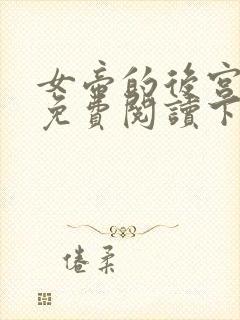 女帝的後宮
免費閱讀下
倦柔